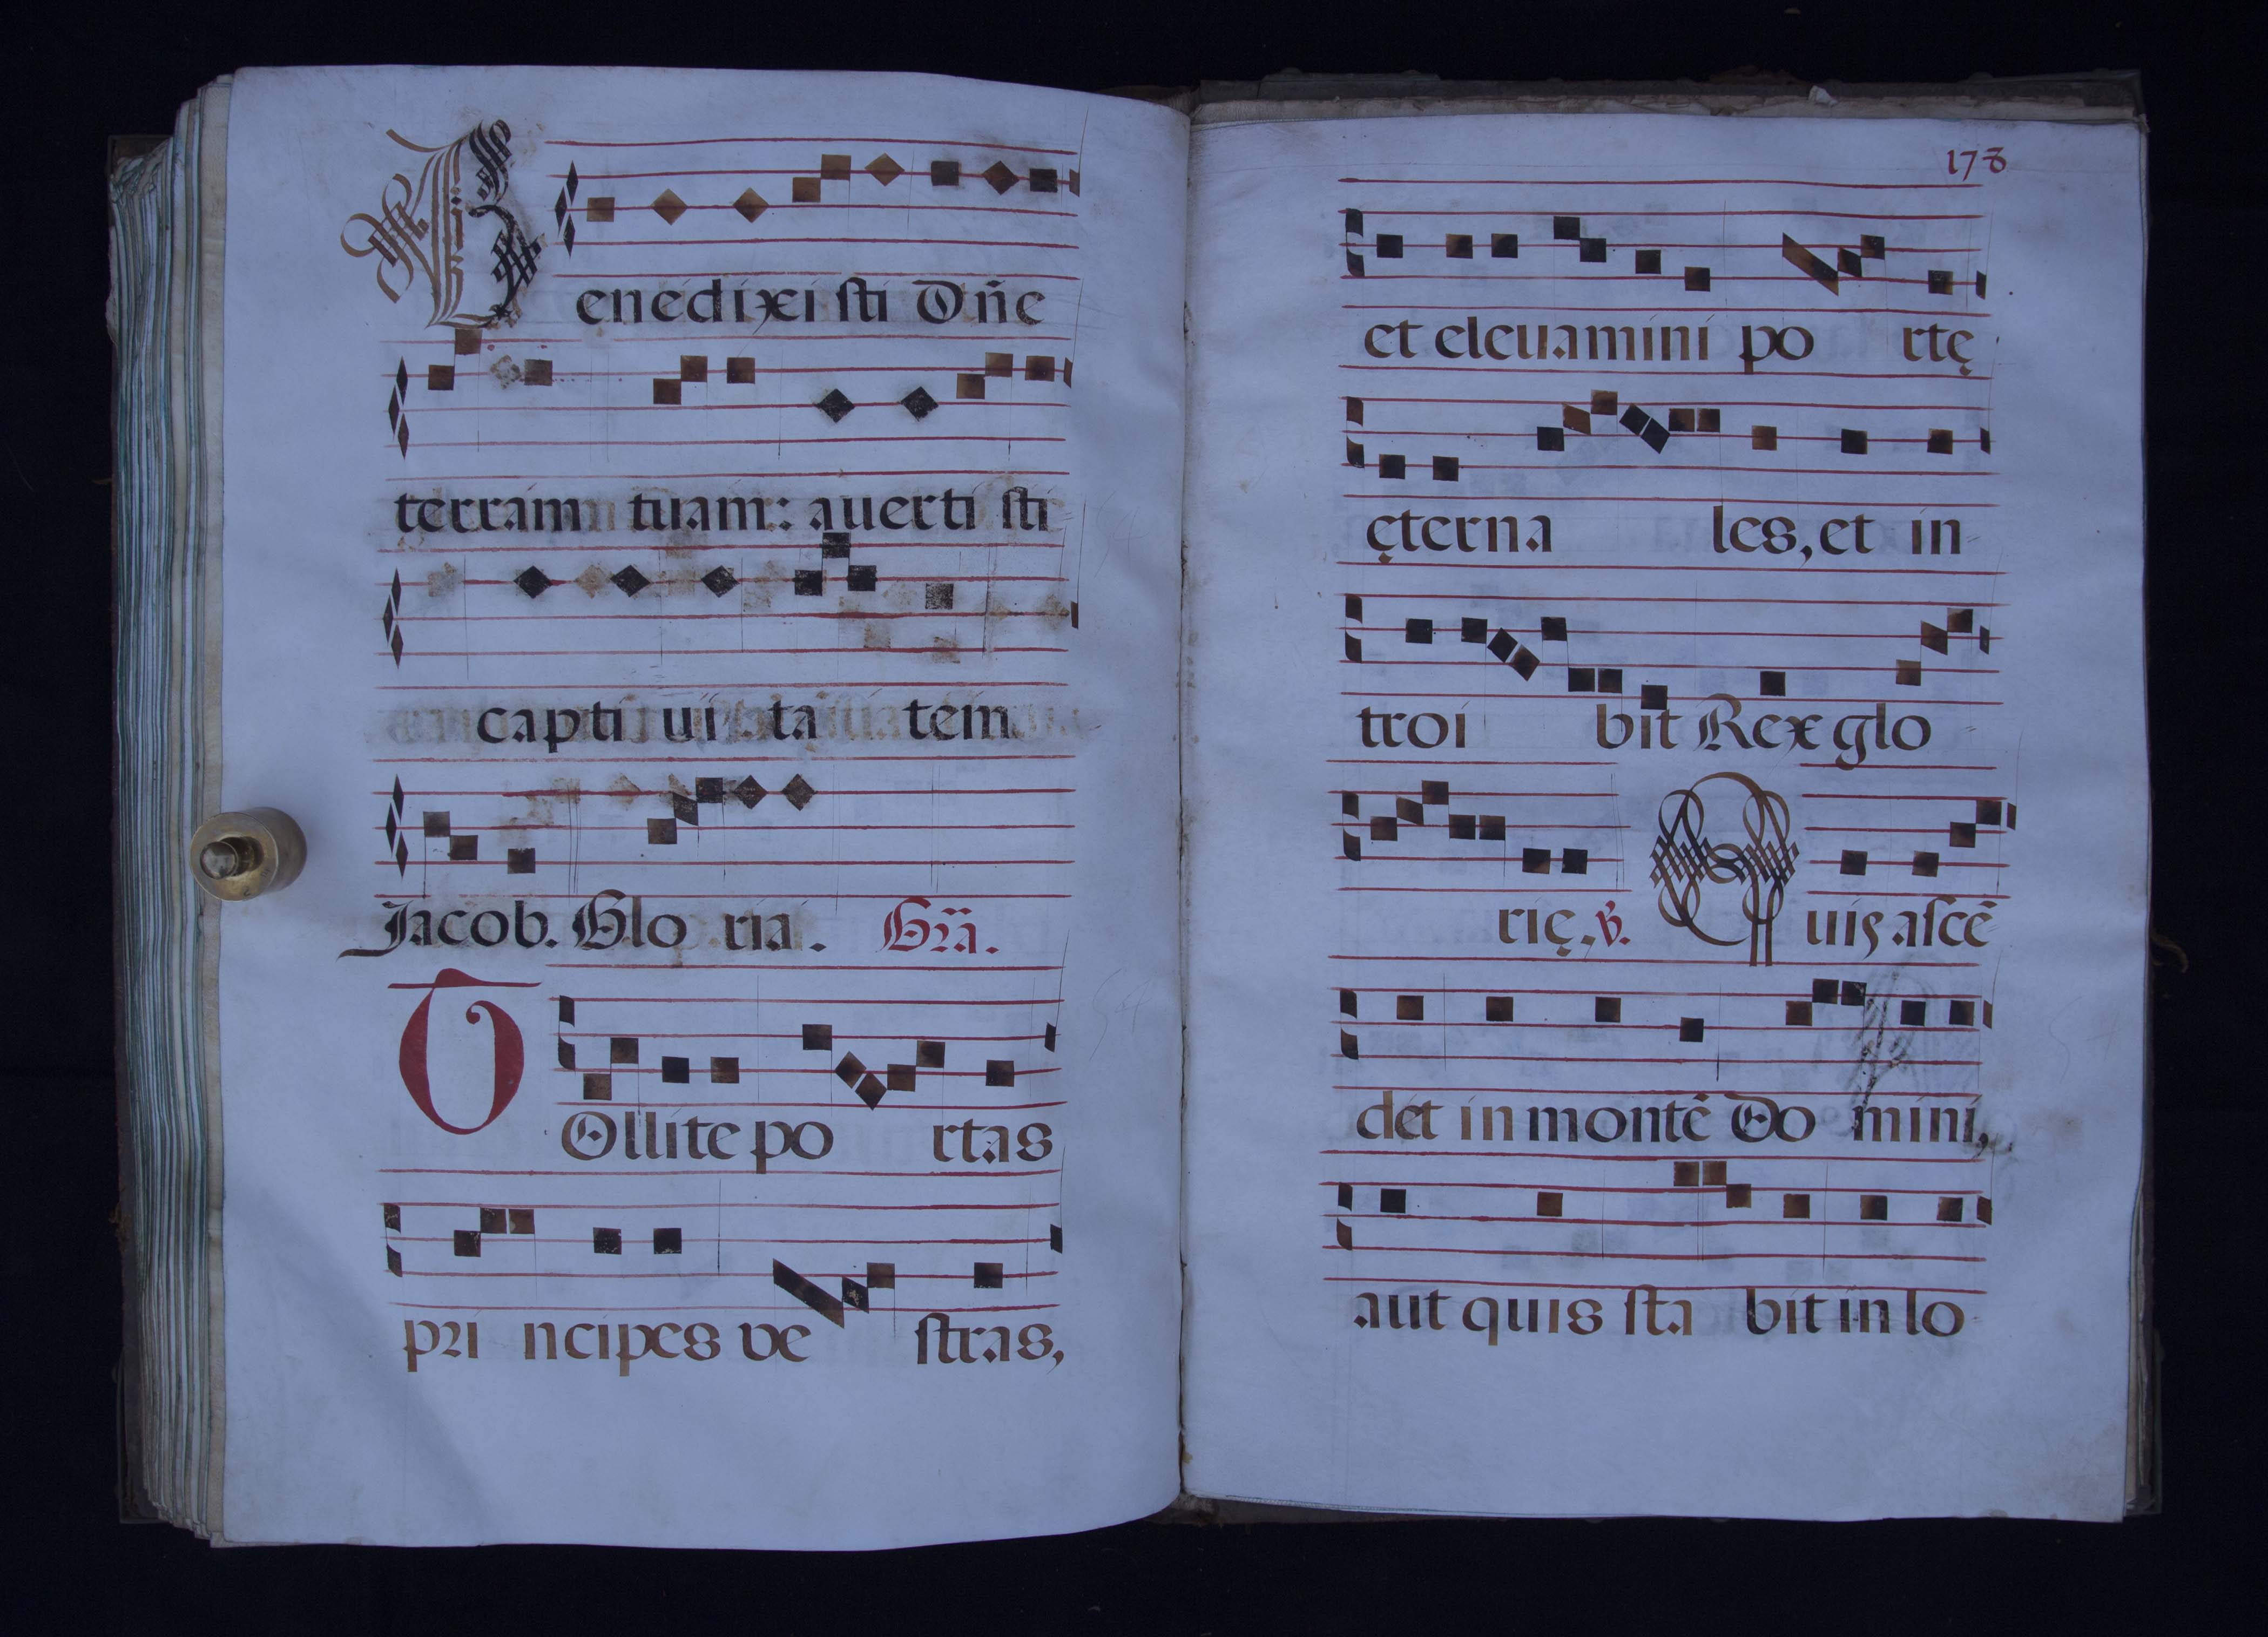 Benedixi sti Dñe
terram tuam: auerti sti
capti ui ta tem
Jacob. Glo ria. Gra͞.
TOllite po rtas
pri ncipes ve stras,
178
et eleuamini po rtę
ęterna les, et in
troi bit Rex glo
rię. ℣. Quis ascē
det in montē Do mini,
aut quis sta bit in lo